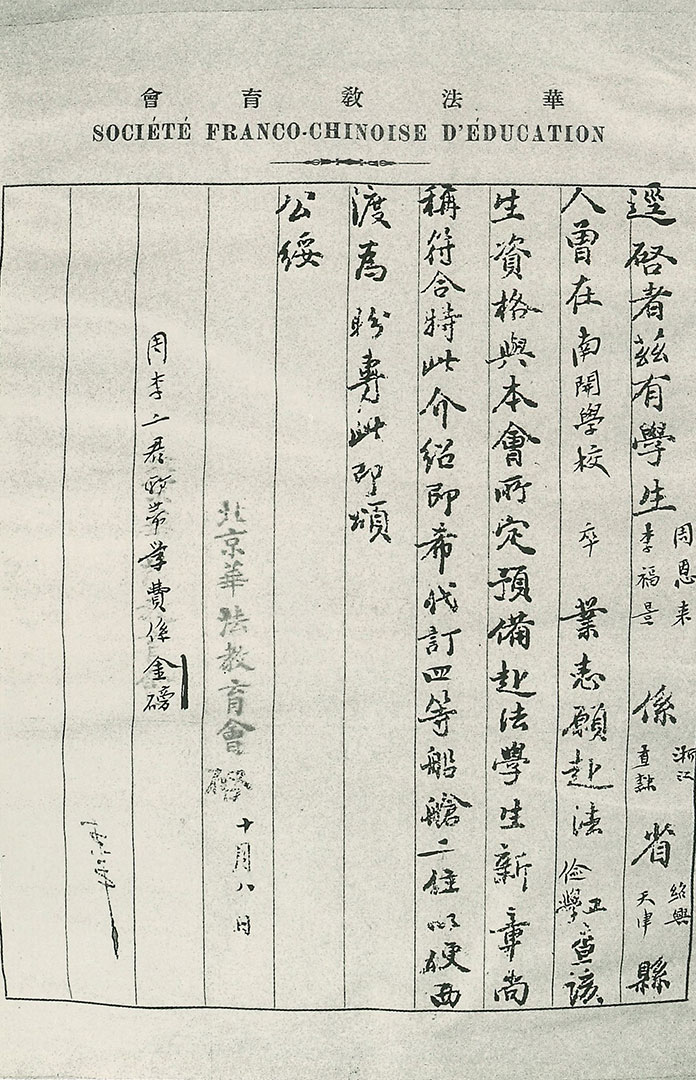 華法教育會
SOCIÉTÉ FRANCO-CHINOISE D'ÉDUCATION
逕啓者茲有學生周恩来李福景係浙江直隸省紹興天津縣
人曾在南開學校卒業志願赴法儉學查該
生資格與本會所定預備赴法學生新章尚
稱符合特此介紹即希代訂四等船艙二位以便西
渡為盼專此即頌
公綏
北京華法教育會十月八日
周李二君所帶學費係金磅